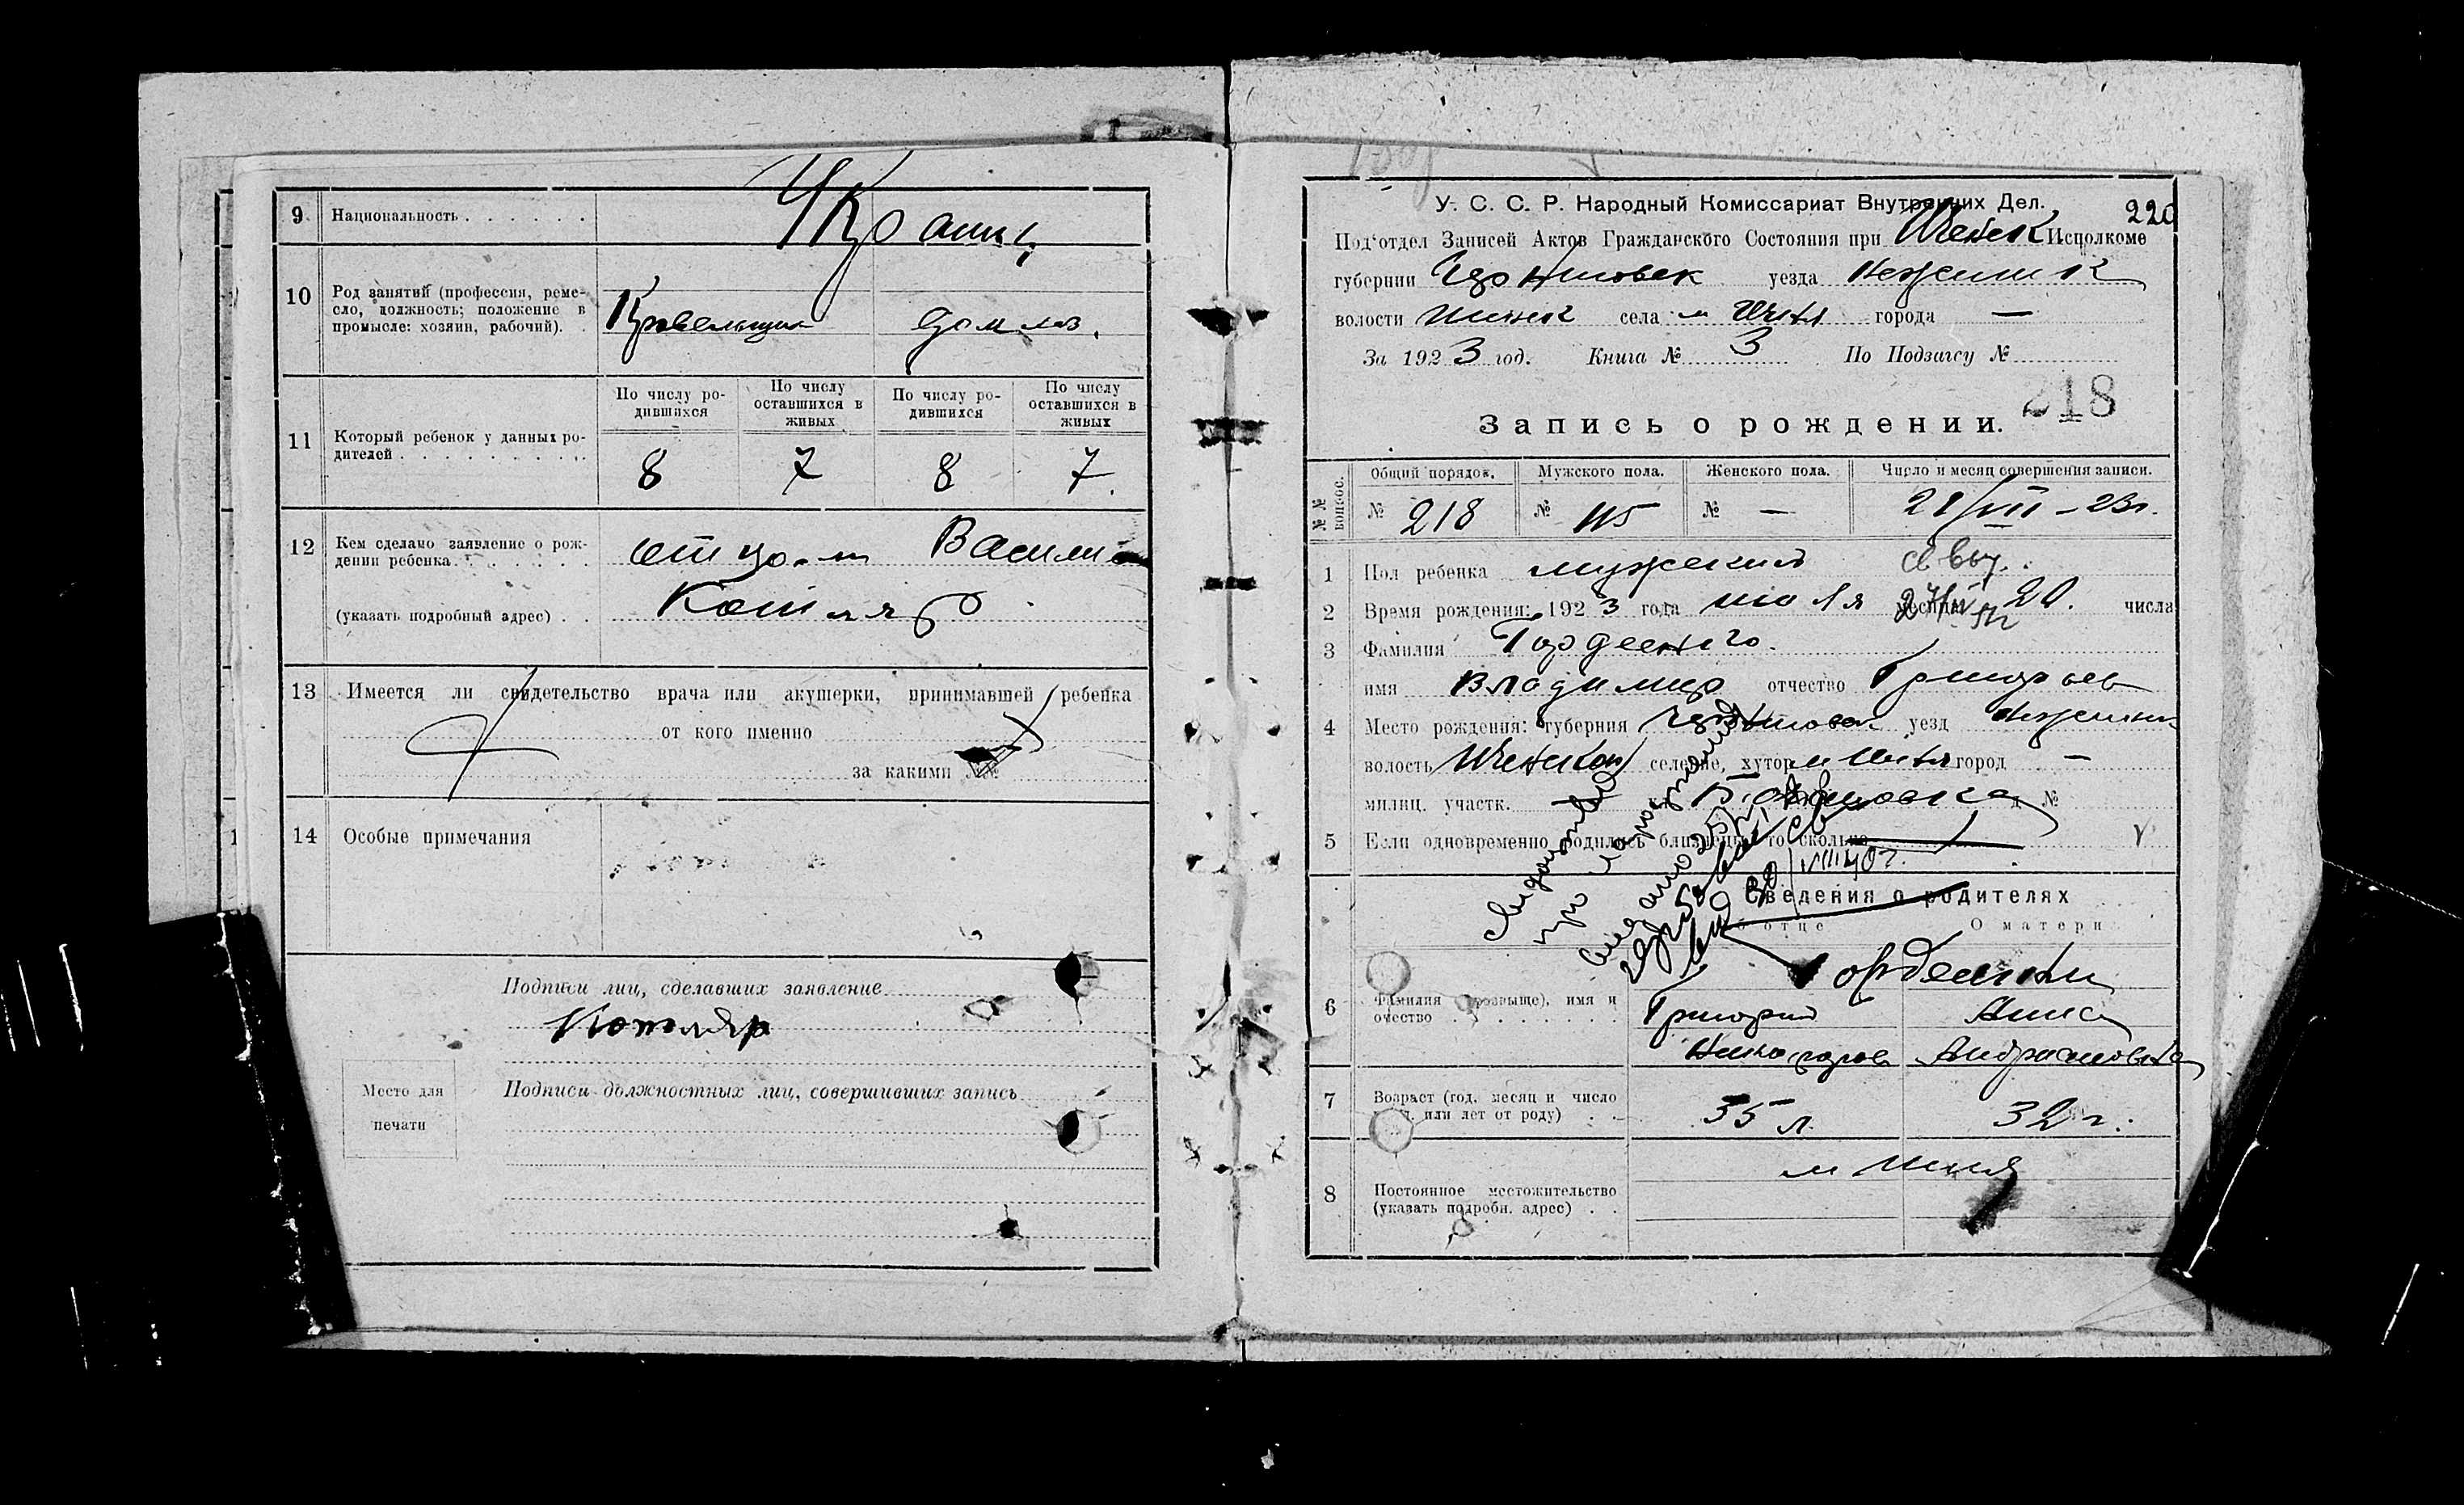 9 Национальность . . . . . . Украинц
10 Род занятий (профессия, реме-
сло, должность; положение в
промысле: хозяин, рабочий). . Кровельщик дом хоз.
11 Который ребенок у данных ро-
дителей . . . . . . . . . .
По числу ро-
дившихся
По числу
оставшихся в
живых
По числу ро-
дившихся
По числу
оставшихся в
живых
8 7 8 7.
12 Кем сделано заявление о рож-
дении ребенка . . . . . . . отцом Васили
(указать подробный адрес) . . Котляр
13 Имеется ли свидетельство врача или акушерки, принимавшей ребенка
от кого именно
за какими №№
14 Особые примечания
Подписи лиц, сделавших заявление
Котляр
Место для
печати
Подписи должностных лиц, совершивших запись
220
У. С. С. Р. Народный Комиссариат Внутренних Дел.
Под'отдел Записей Актов Гражданского Состояния при Иченск Исполкоме
губернии Черниговск уезда Нежинск
волости Иченск села м Ичня города —
За 1923 год. Книга № 3 По Подзагсу №
218
Запись о рождении.
№№ вопрос.
Общий порядок. Мужского пола. Женского пола. Число и месяц совершения записи.
№ 218 № 115 № — 21/VIII – 23г.
1 Пол ребенка мужский
св выд.
2 Время рождения: 1923 года июля месяца 20. числа
3 Фамилия Гордеенко.
имя Владимир отчество Григорьев
4 Место рождения: губерния Черниговск уезд Нежинск
волость Иченской селение, хутор м Ичня город —
милиц. участк. №
5 Если одновременно родилось близнецы, то сколько
Свидоцтво
про народження
видано
VIII 40 г.
Сведения о родителях
Об отце О матери
Гордеенки
6 Фамилия (прозвище), имя и
очество . . . . . . . . Григорий Анна
Никифоров Андриановна
7 Возраст (год, месяц и число
или лет от роду) . . 35 л. 32 г.
8 Постоянное местожительство
(указать подробн. адрес) . . м Ичня